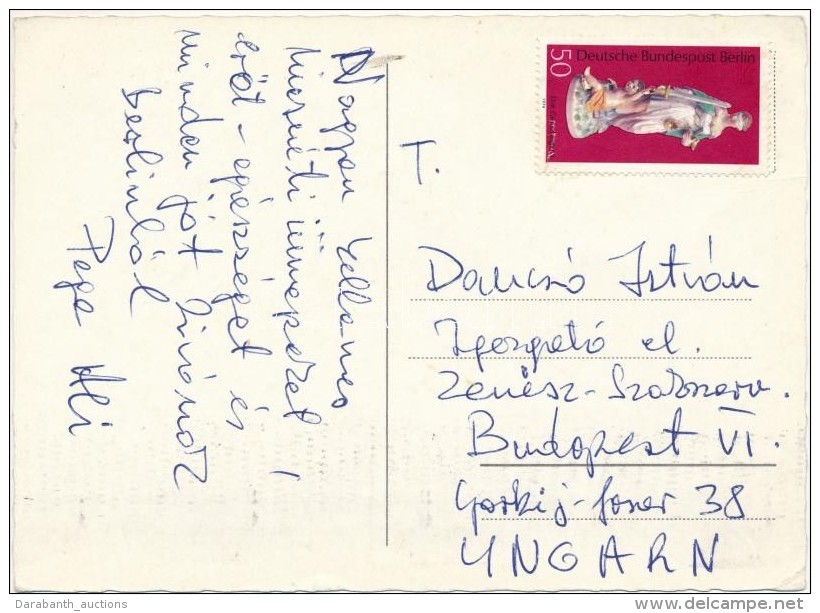 Nagyon kellemes
húsvéti ünnepeket!
erőt-egészséget és
minden jót kivánok
Berlinből
Pege Ali
50
Deutsche Bundespost Berlin
T.
Dancsó István
Igazgató el.
Zenész-Szakszerv.
Budapest VI.
Gorkij-fasor 38
UNGARN
Darabanth_auctions
delcampe.net